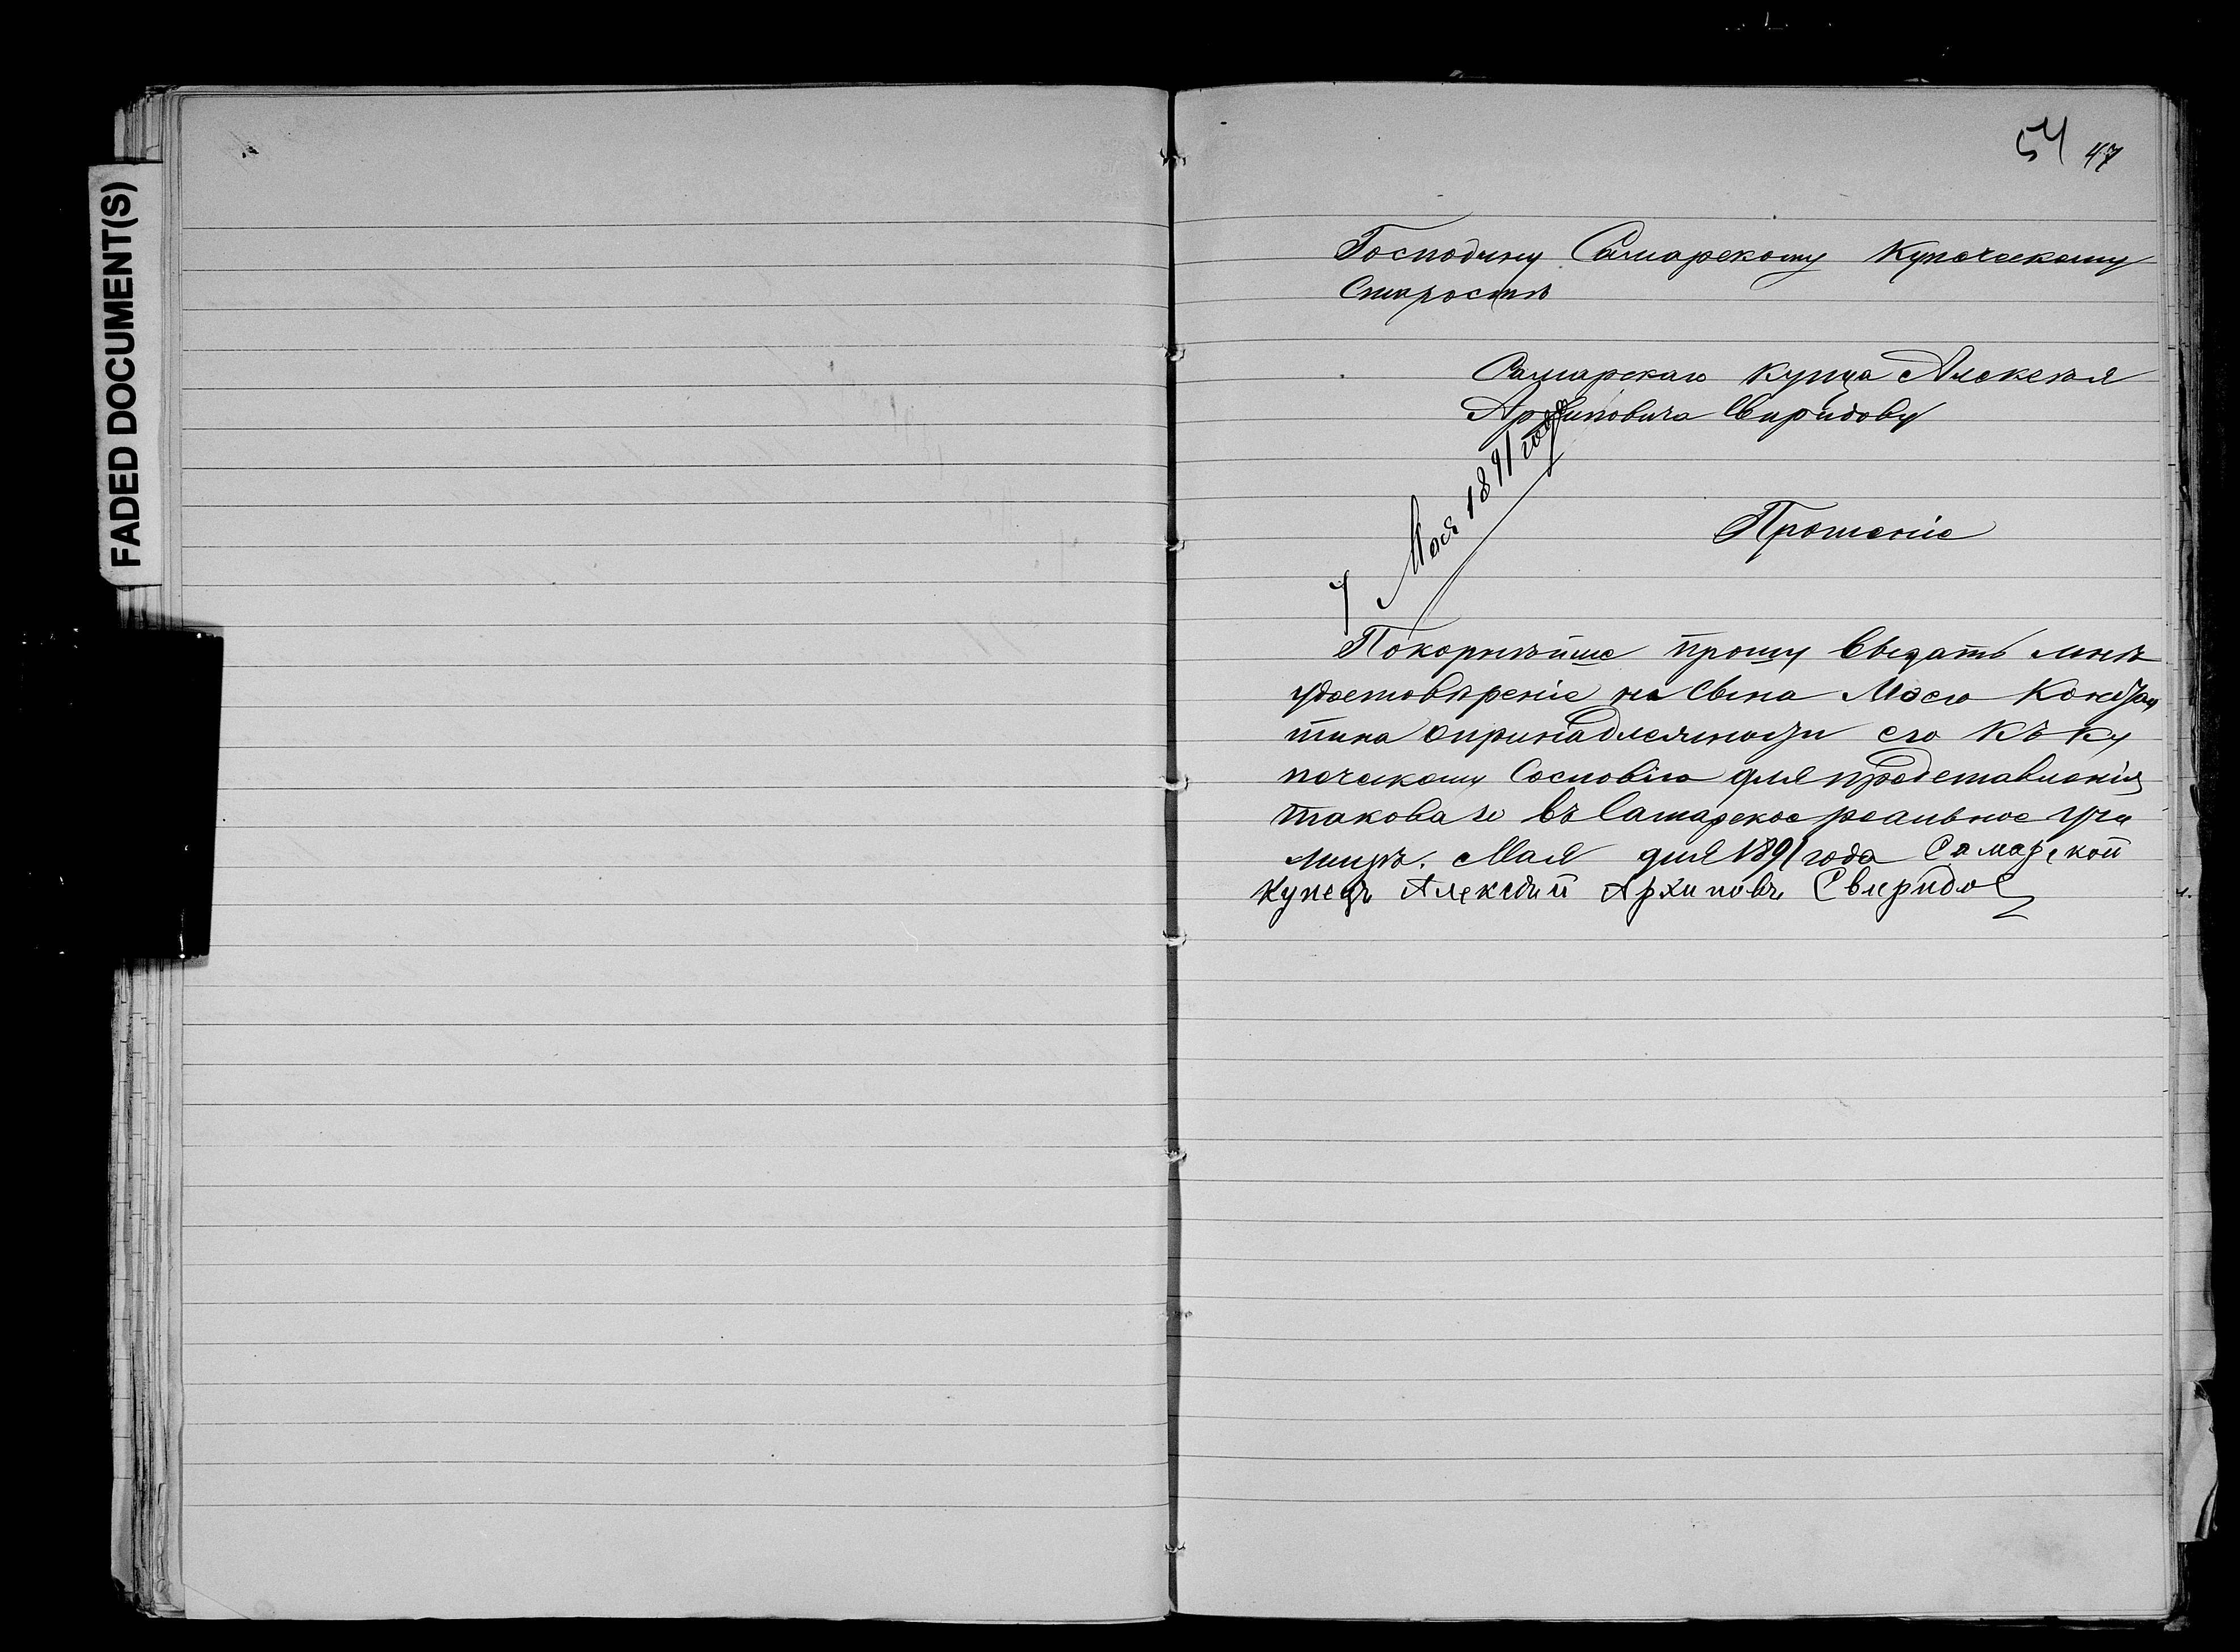 FADED DOCUMENT(S)
54 47
Господину Самарскому Купеческому
Старостѣ
Самарскаго купца Алексѣя
Архиповича Свиридову
Мая 1891 года
Прошеніе
Покорнѣйше прошу выдать мнѣ
удостовѣреніе на Сына Моего Констан
тина опринадлежности его Къ Ку
печескому Сословію для представленія
таковаго въ Самарское реальное учи
лищѣ. Мая дня 1891 года Самарской
Купецъ Алексѣй Архиповъ Свиридов